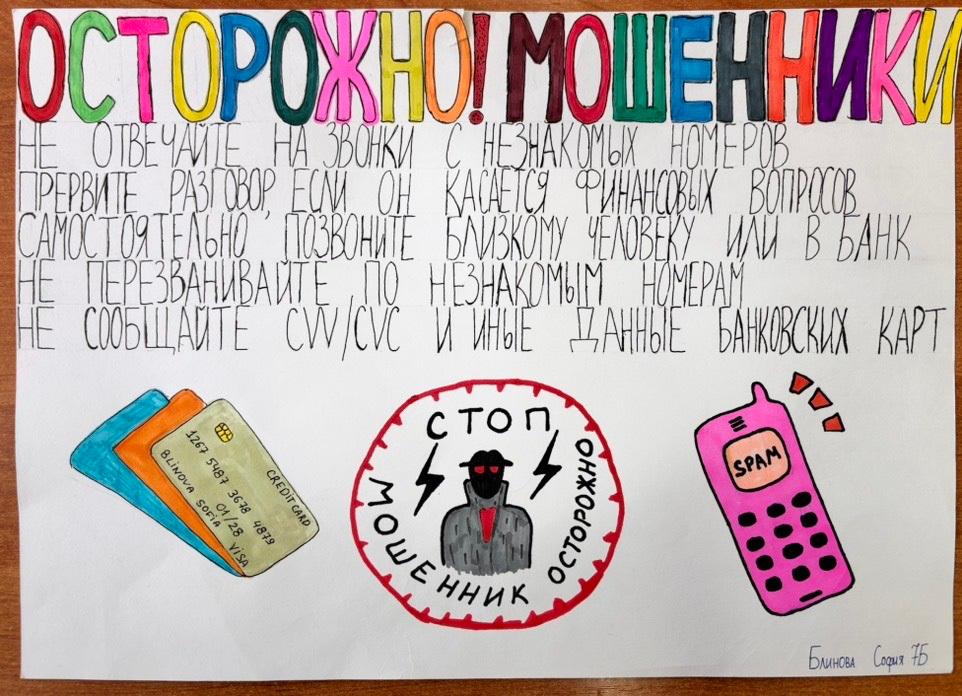 ОСТОРОЖНО! МОШЕННИКИ
НЕ ОТВЕЧАЙТЕ НА ЗВОНКИ С НЕЗНАКОМЫХ НОМЕРОВ
ПРЕРВИТЕ РАЗГОВОР, ЕСЛИ ОН КАСАЕТСЯ ФИНАНСОВЫХ ВОПРОСОВ
САМОСТОЯТЕЛЬНО ПОЗВОНИТЕ БЛИЗКОМУ ЧЕЛОВЕКУ ИЛИ В БАНК
НЕ ПЕРЕЗВАНИВАЙТЕ ПО НЕЗНАКОМЫМ НОМЕРАМ
НЕ СООБЩАЙТЕ CVV/CVC И ИНЫЕ ДАННЫЕ БАНКОВСКИХ КАРТ
CREDITCARD
1267 5487 3678 4879
01/28
BLINOVA SOFIA VISA
СТОП
МОШЕННИК
ОСТОРОЖНО
SPAM
Блинова София 7Б